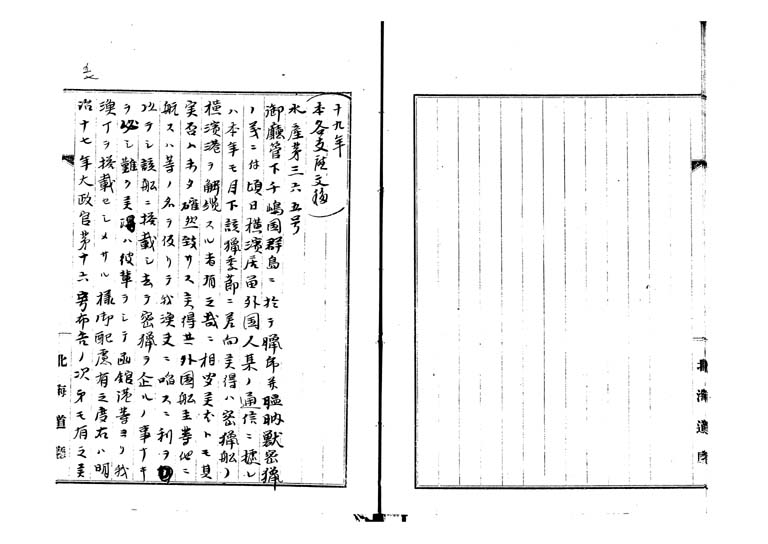 十九年
(本各支庁文移)
水産第三六五号
御廳管下千嶋国群島ニ於テ臘虎膃肭獣密猟
ノ義ニ付頃日横濱居留外国人集ノ通信ニ據レ
ハ本年モ目下該猟季節ニ差向候得ハ密猟船ノ
横濱港ヲ解纜スル者有之哉ニ相聞候尤トモ其
実否ハ未タ確然致サス候得共外国船主等他ニ
航スハ等ノ名ヲ仮リテ我漁夫ニ啗スニ利ヲ
以テシ該船ニ搭載シ去テ密猟ヲ企ルノ事ナキ
ヲ必シ難ク候得ハ彼輩ヲシテ函館港等ヨリ我
漁丁ヲ搭載セシメサル様御配慮有之度右ハ明
治十七年太政官第十六号布告ノ次第モ有之候
北海道廳
北海道廳